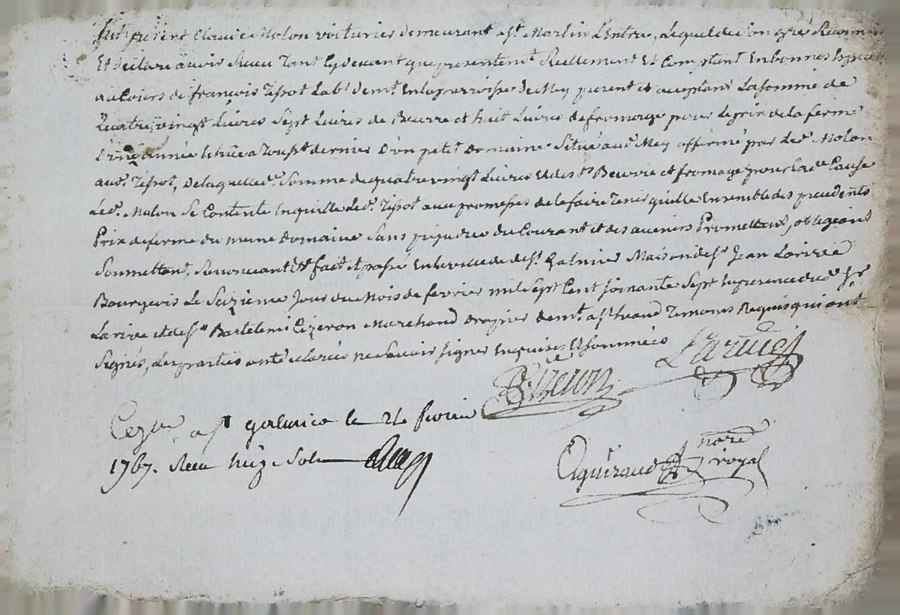 fut présent Claude Molon voiturier demeurant a St. Martin Lentre, Lequel de son gré Reconnu
Et declare avoir Receu Tant Cy devant que presentemt. Reellement Et Comptant En bonnes Especes
au Cours de françois Tissot Labr. demt. En la parroisse de Mey present et acceptant La somme de
Quatre vingt Livres Sept Livres de Beurre et huit Livres de fromage pour le prix de la ferme
D'une année Echüe a Touste. dernier D'un petit Domaine Situé au d. Mey affermé par Le d. Molon
au d. Tissot, De laquelle d. Somme de quatre vingt Livres Ud. Beurre et fromage pour La d. Cause
Le d. Molon Se Contente En quitte Le d. Tissot avec promesses de le faire Tenir quitte Ensemble des precedents
Prix de ferme du meme domaine Sans prejudice du Courant et des avenirs Promettant, obligeant
Soumettant, Renonceant Et fait Et passé En la ville de St. Galmier Maison de Sr. Jean Larivée
Bourgeois Le Seizieme Jour du Mois de fevrier mil Sept Cent Soixante Sept En presence du d. Sr.
Larive et de Sr. Bartelemi Cizeron Marchand drapier demt. a St. Temoins Requis qui ont
Signés, Les parties ont declarée ne Savoir Signer Enquises Et Sommées
Cizeron Larive
Cerle. a St galmier le 24 fevrier
1767. Receu treize Sols
Aguiraud nore. royal